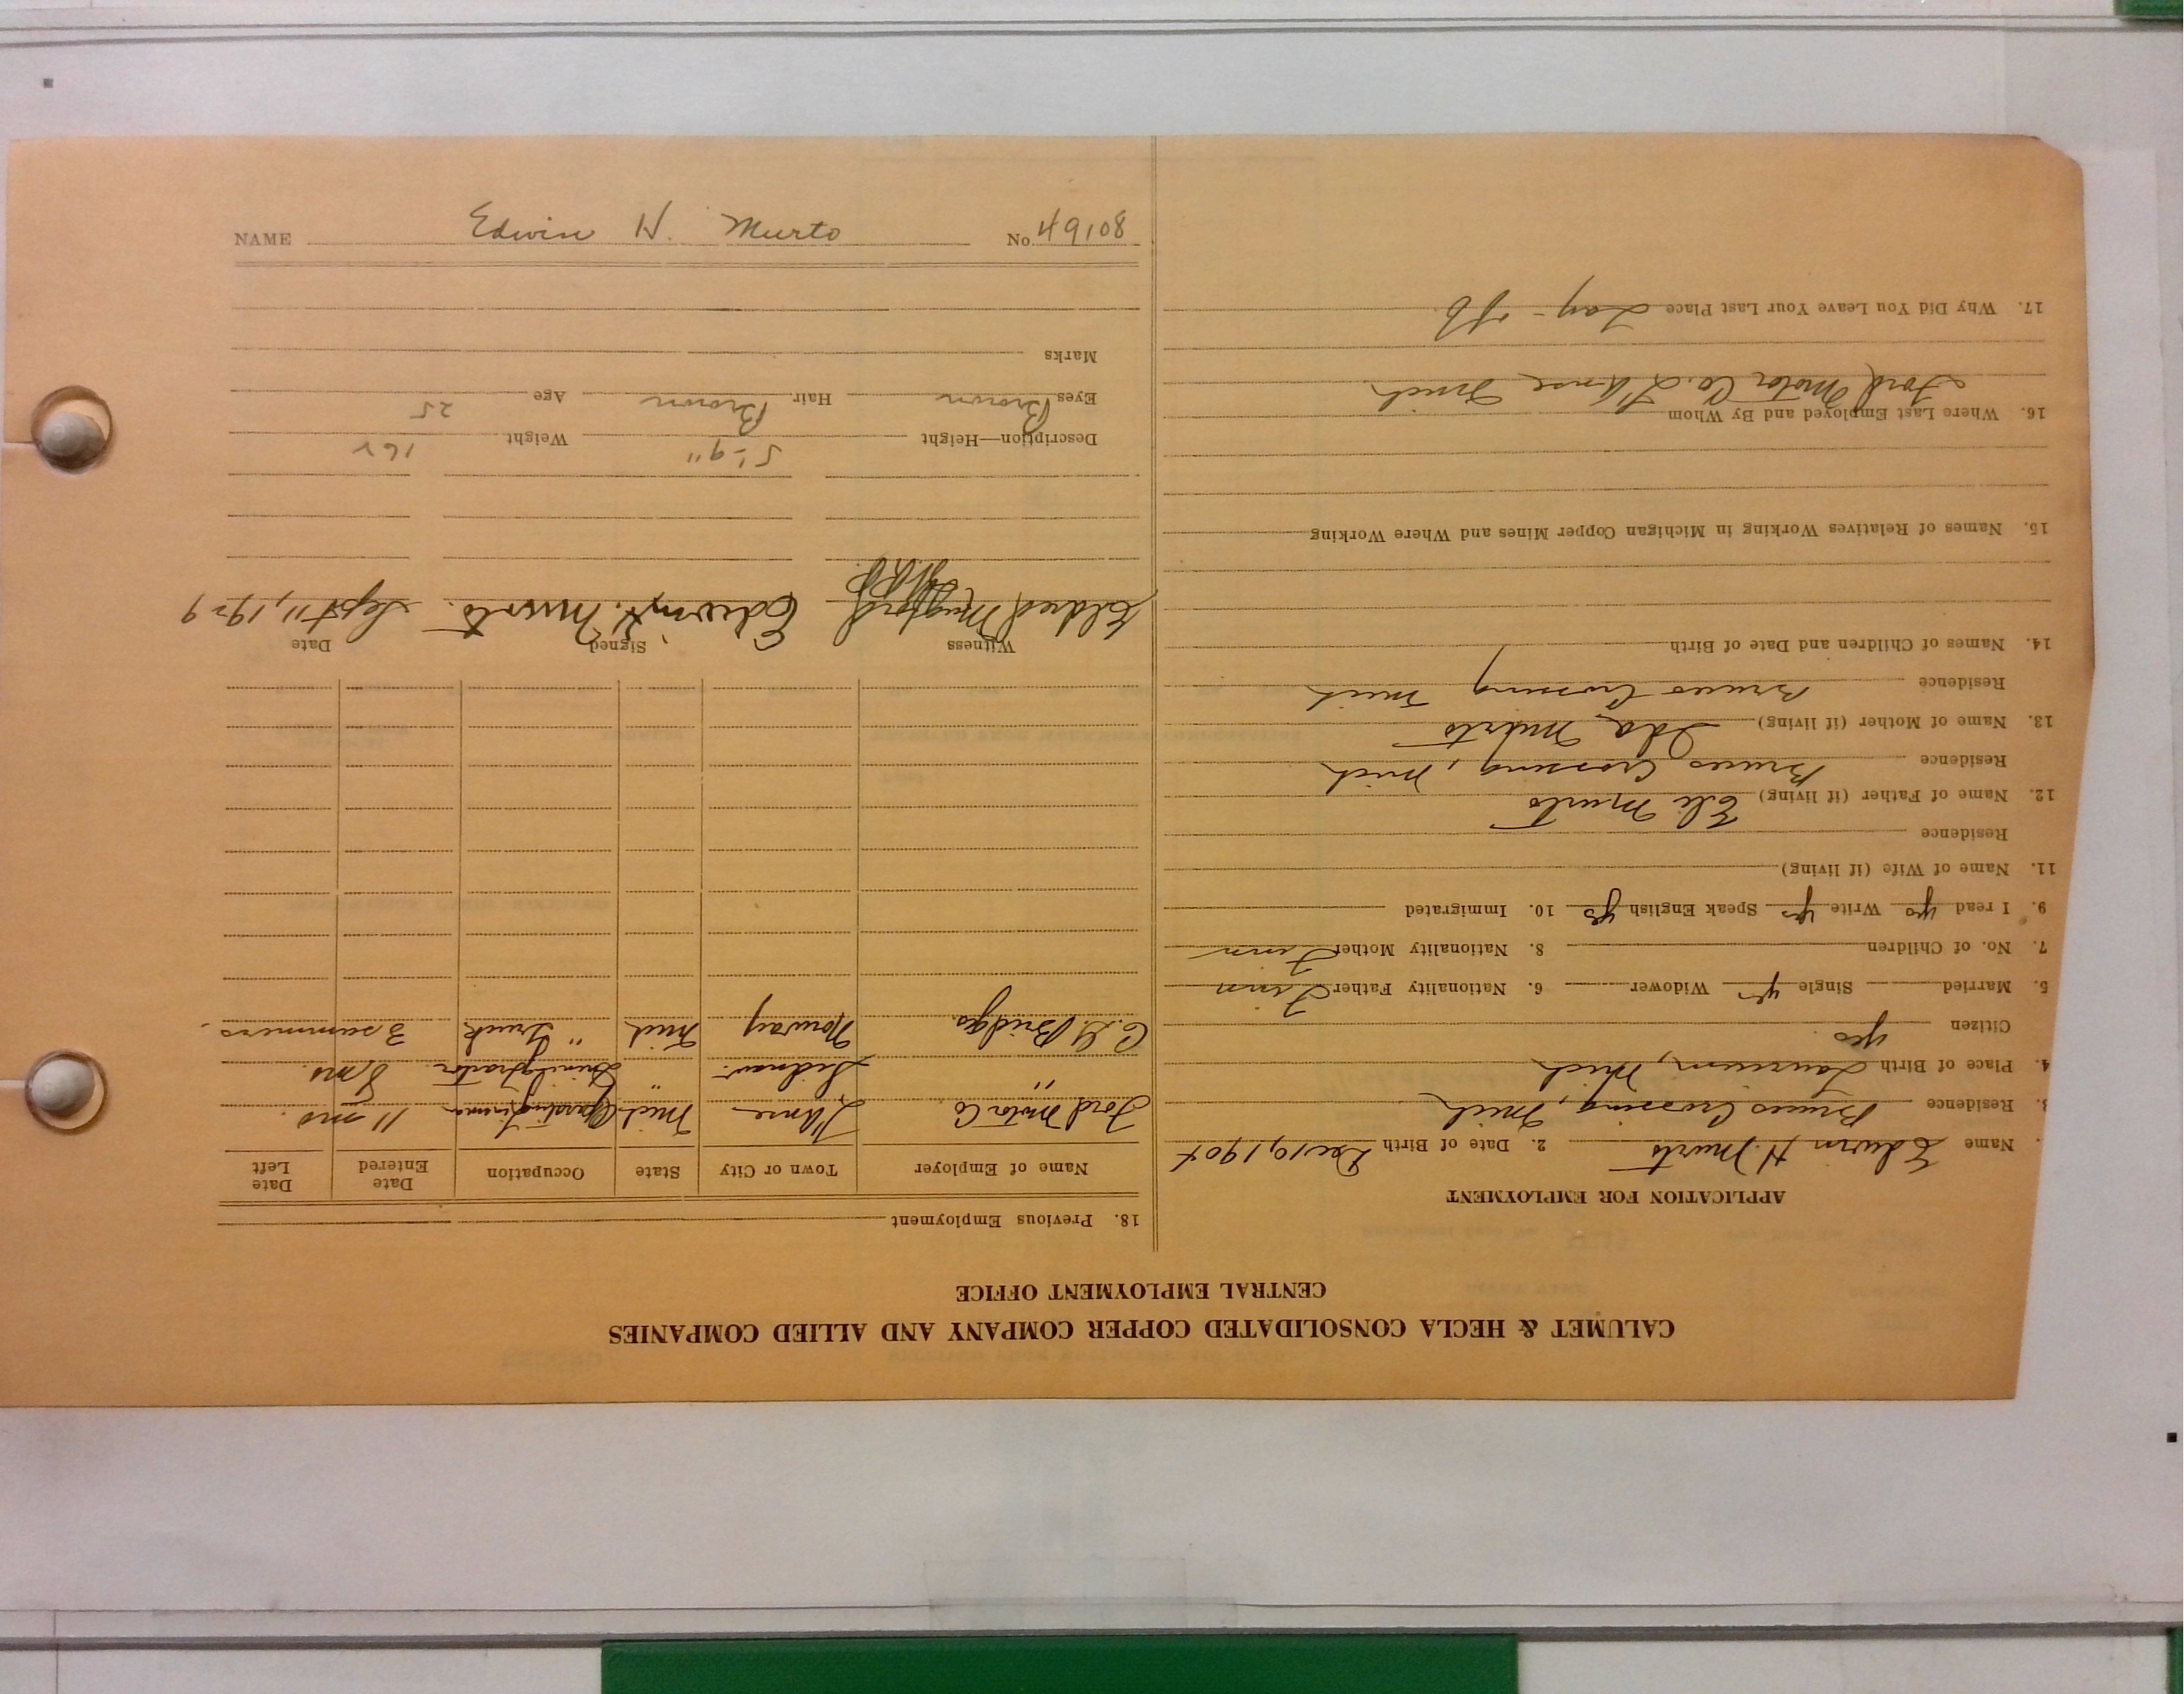 CALUMET & HECLA CONSOLIDATED COPPER COMPANY AND ALLIED COMPANIES
CENTRAL EMPLOYMENT OFFICE
APPLICATION FOR EMPLOYMENT
Name Edwin H. Murto 2. Date of Birth Dec 10, 1904
3. Residence Bruces Crossing, Mich
4. Place of Birth Laurium, Mich
Citizen yes.
5. Married Single yes Widower 6. Nationality Father Finn
7. No. of Children 8. Nationality Mother Finn
9. I read yes Write yes Speak English yes 10. Immigrated
11. Name of Wife (if living)
Residence
12. Name of Father (if living) Eli Murto
Residence Bruces Crossing, Mich
13. Name of Mother (if living) Ida Murto
Residence Bruces Crossing Mich
14. Names of Children and Date of Birth
15. Names of Relatives Working in Michigan Copper Mines and Where Working
16. Where Last Employed and By Whom
Ford Motor Co. L'Anse Mich.
17. Why Did You Leave Your Last Place Lay-off
18. Previous Employment
Name of Employer Town or City State Occupation Date Entered Date Left
Ford Motor Co L'Anse Mich Fireman 11 mo.
" Sidnaw " 8 mo.
C.G. Bridges Norway Mich " Truck 3 summers.
Witness Signed Date
Eldred Mugford Edwin H. Murto. Sept 11, 1929
Description—Height 5'-9" Weight 162
Eyes Brown Hair Brown Age 25
Marks
NAME Edwin H. Murto No. 49108